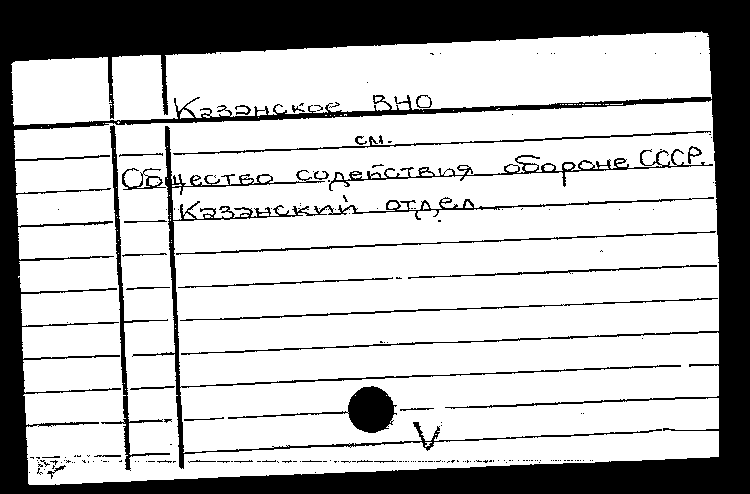 Казанское ВНО
см.
Общество содействия обороне СССР.
Казанский отдел.
V